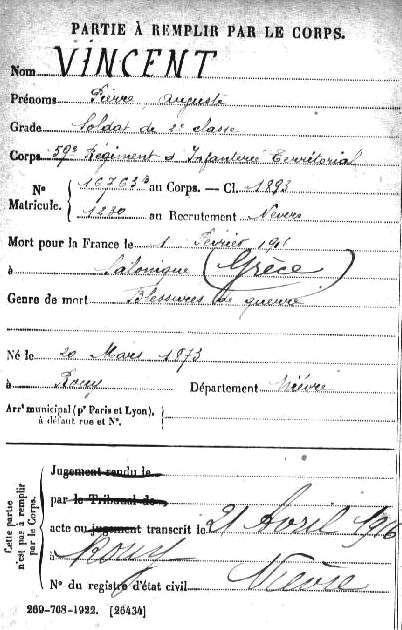 PARTIE À REMPLIR PAR LE CORPS.
Nom VINCENT
Prénoms Pierre Auguste
Grade Soldat de 2e classe
Corps 59e Régiment d'Infanterie Territorial
No Matricule. 16763 au Corps. — Cl. 1893
1230 au Recrutement Nevers
Mort pour la France le 1 Février 1916
à Salonique (Grèce)
Genre de mort Blessures de guerre
Né le 20 Mars 1873
à Rouy Département Nièvre
Arrt municipal (pr Paris et Lyon),
à défaut rue et No.
Cette partie n'est pas à remplir par le Corps.
Jugement rendu le
par le Tribunal de
acte ou jugement transcrit le 21 Avril 1916
à Rouy
No du registre d'état civil Nièvre
269-708-1922. [26434]